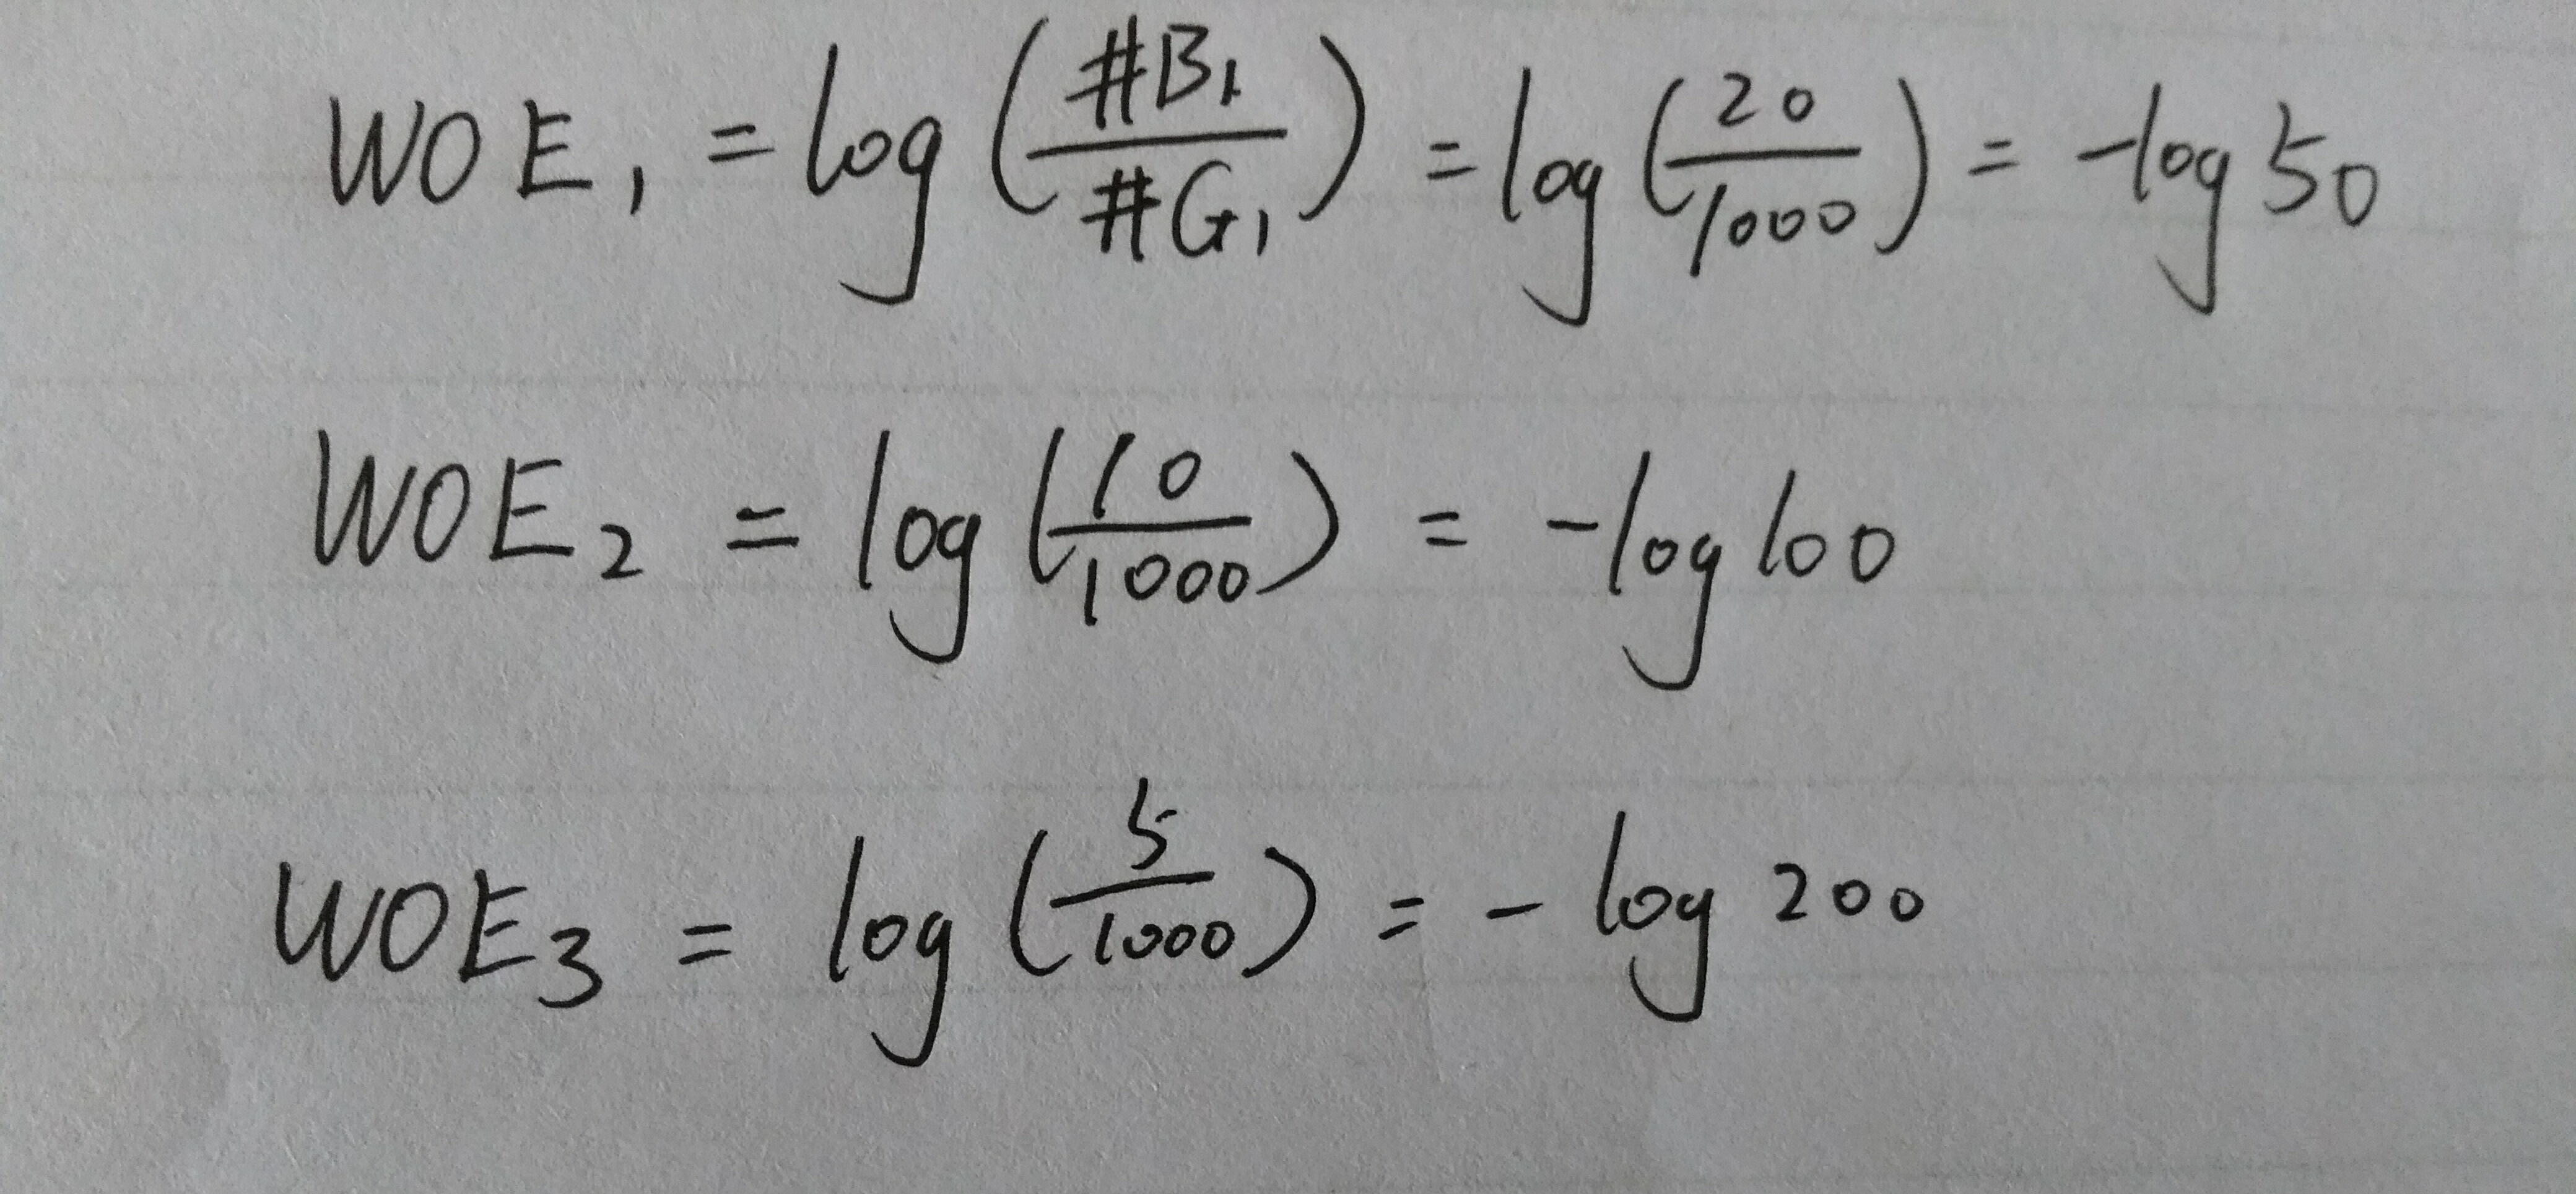 WOE₁ = log(#B₁/#G₁) = log(20/1000) = -log50
WOE₂ = log(10/1000) = -log100
WOE₃ = log(5/1000) = -log 200